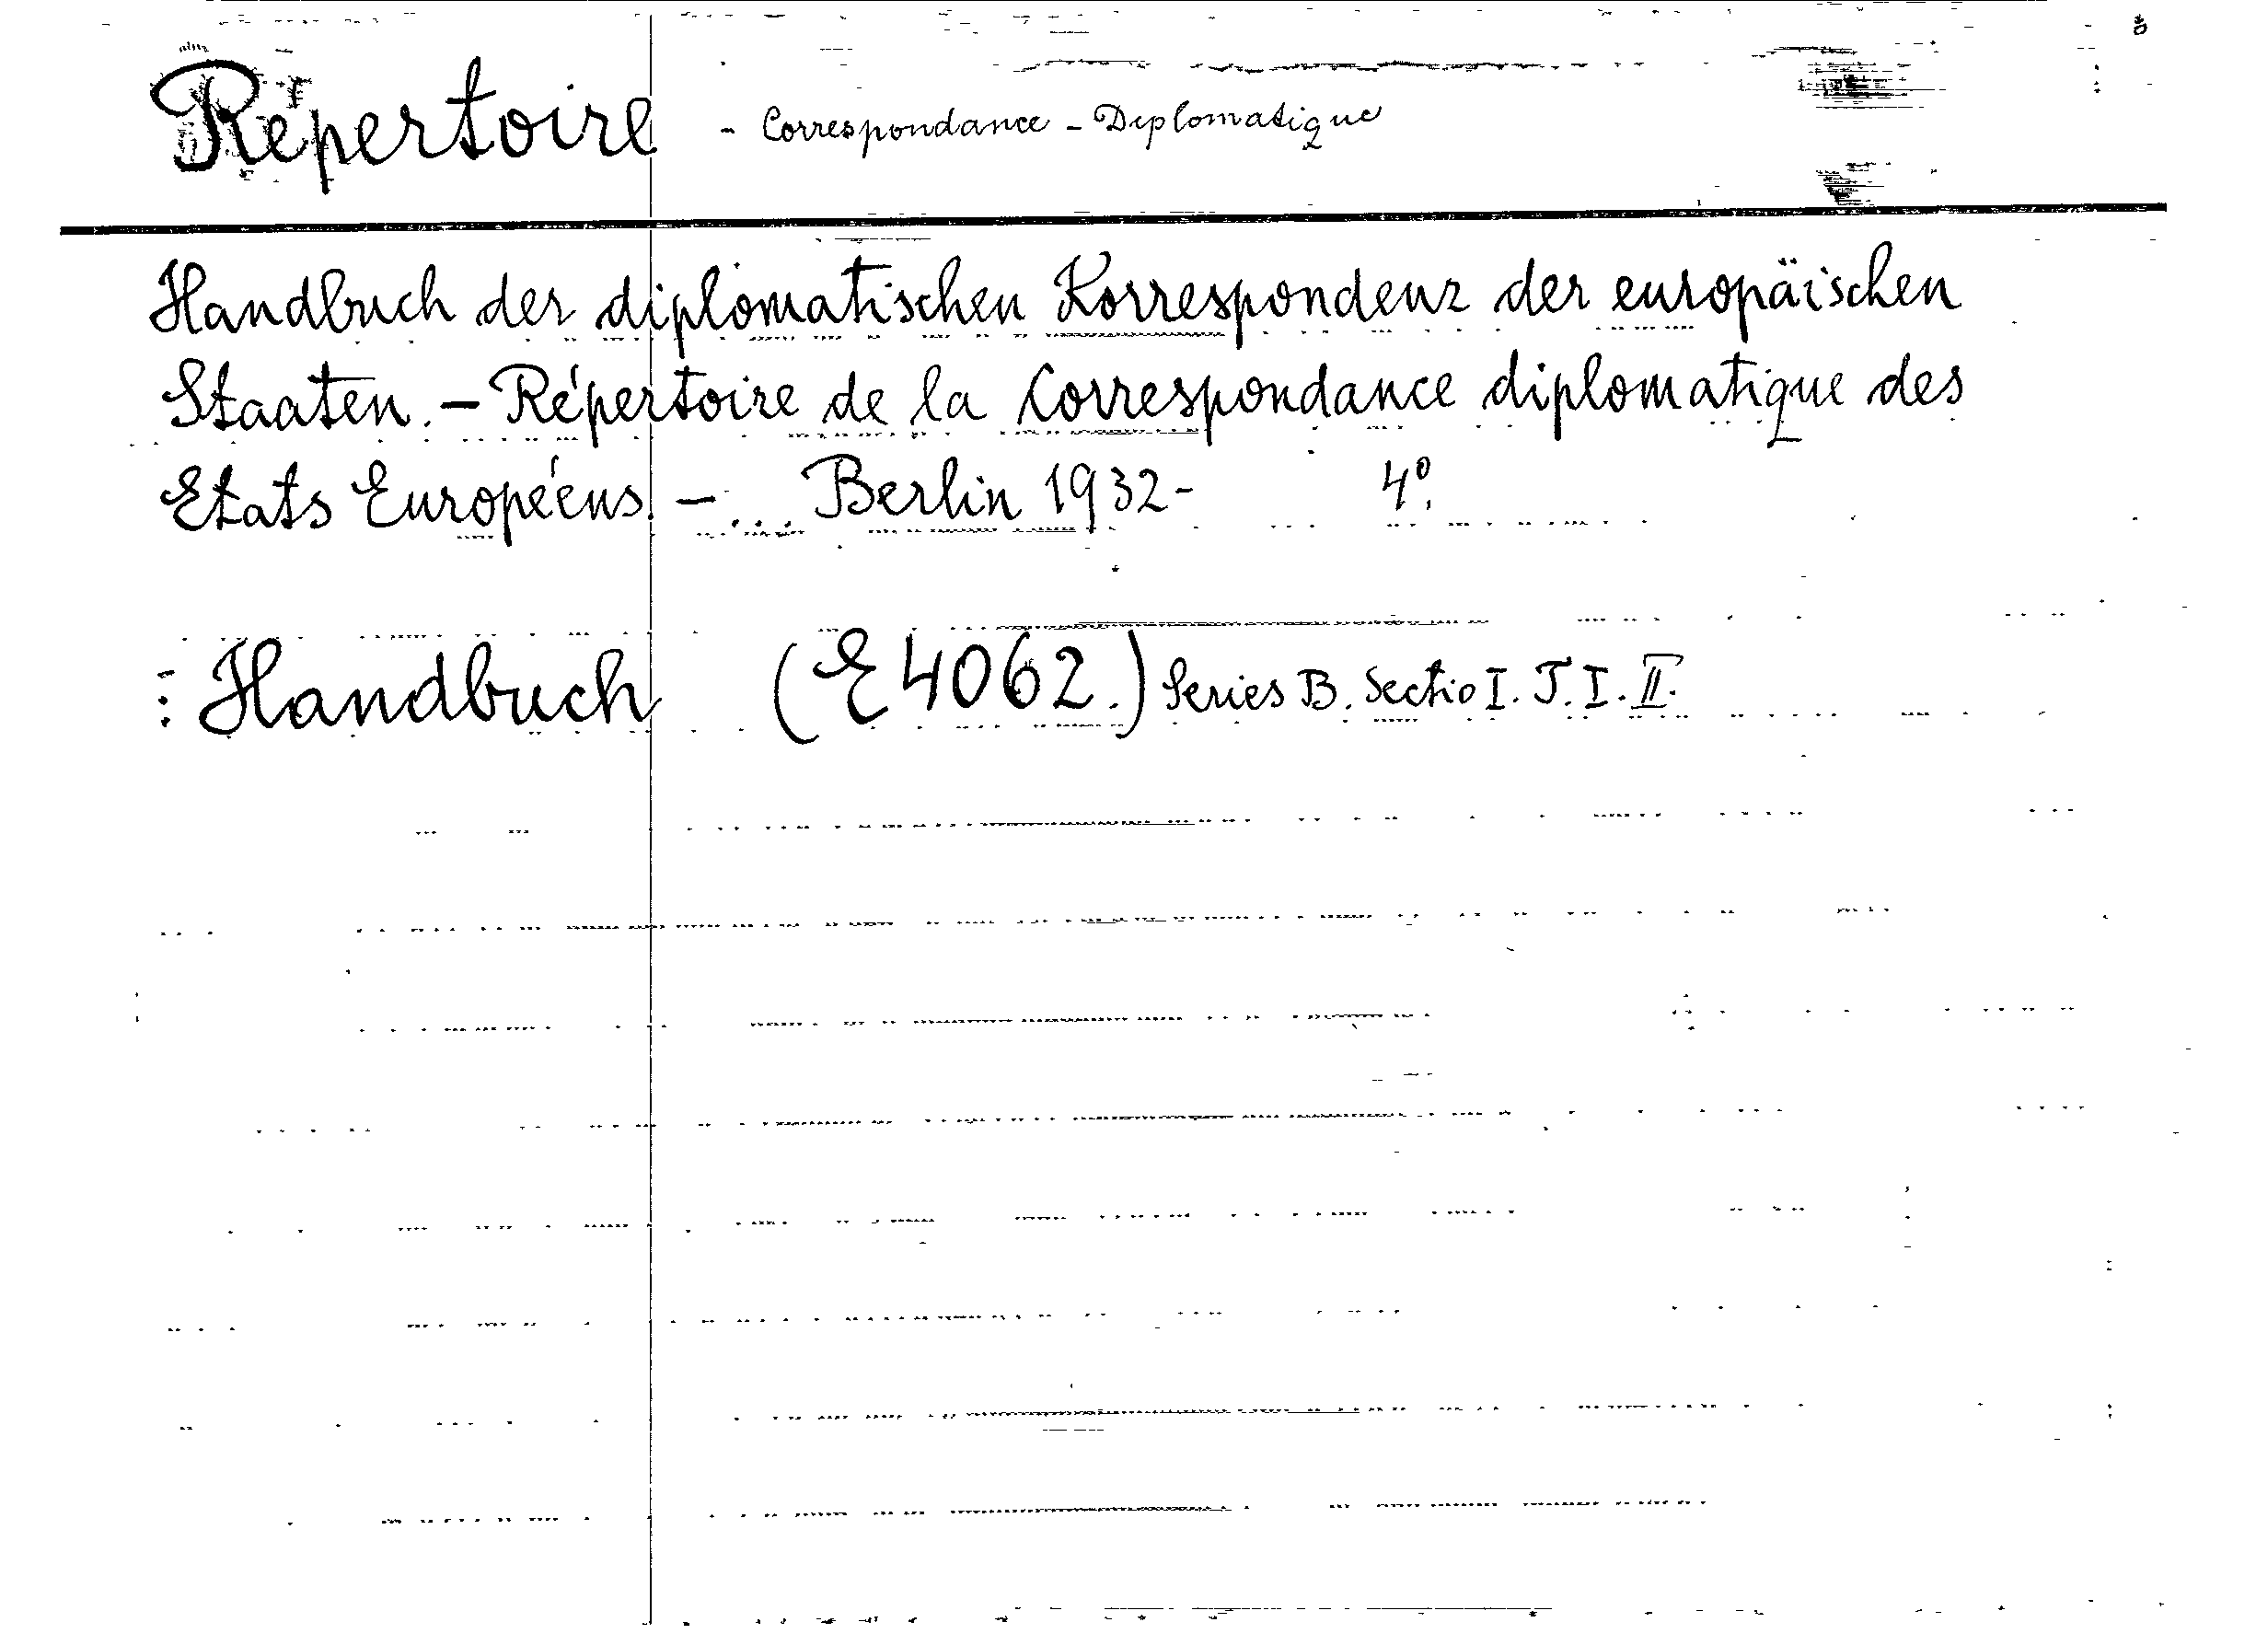 Répertoire - Correspondance - Diplomatique
Handbuch der diplomatischen Korrespondenz der europäischen
Staaten. – Répertoire de la Correspondance diplomatique des
Etats Européens. – ... Berlin 1932- 4º.
: Handbuch (E 4062.) Series B. Sectio I. T. I. II.